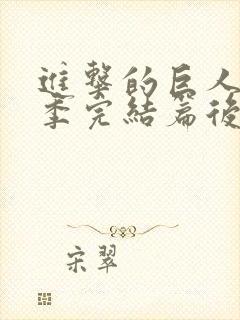 進撃的巨人
季完結篇後
宋翠